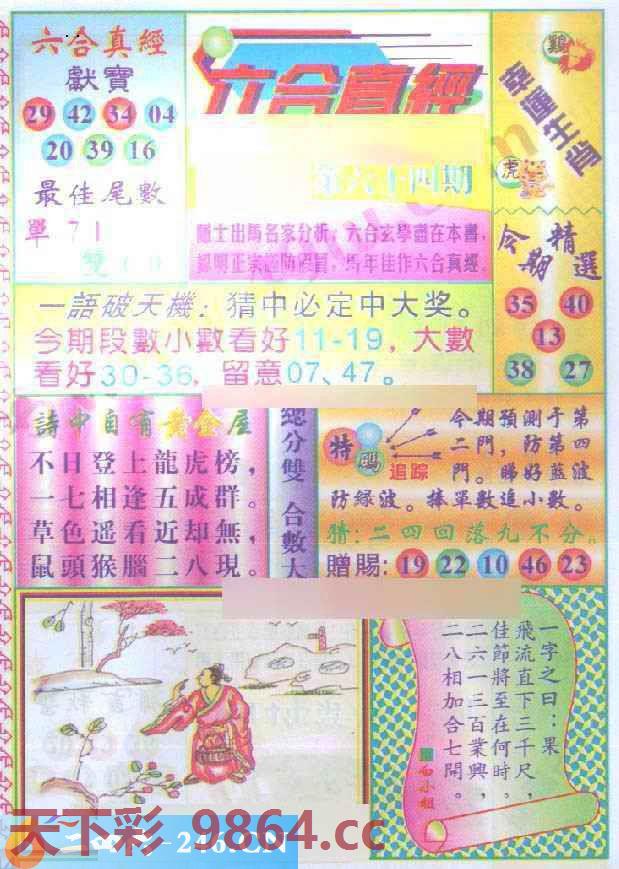 六合真經
獻寶
29 42 34 04
20 39 16
最佳尾數
單 71
雙
六合真經
第六十四期
隱士出馬名家分析，六合玄學盡在本書，
鄭明正宗謹防假冒，馬年佳作六合真經
鷄
幸運生肖
虎
今期精選
35 40
13
38 27
一語破天機：猜中必定中大奖。
今期段數小數看好11-19，大數
看好30-36，留意07、47。
詩中自有黃金屋
不日登上龍虎榜，
一七相逢五成群。
草色遥看近却無，
鼠頭猴腦二八現。
總分雙 合數大
特碼
追踪
今期預測于第
二門，防第四
門。睇好藍波
防緑波。捧單數追小數。
猜：二四回落九不分。
贈賜：19 22 10 46 23
一字之曰：果
飛流直下三千尺，
佳節將至在何時。
二六一三百業興，
二八相加合七開。
白小姐
天下彩 9864.cc
246.CN